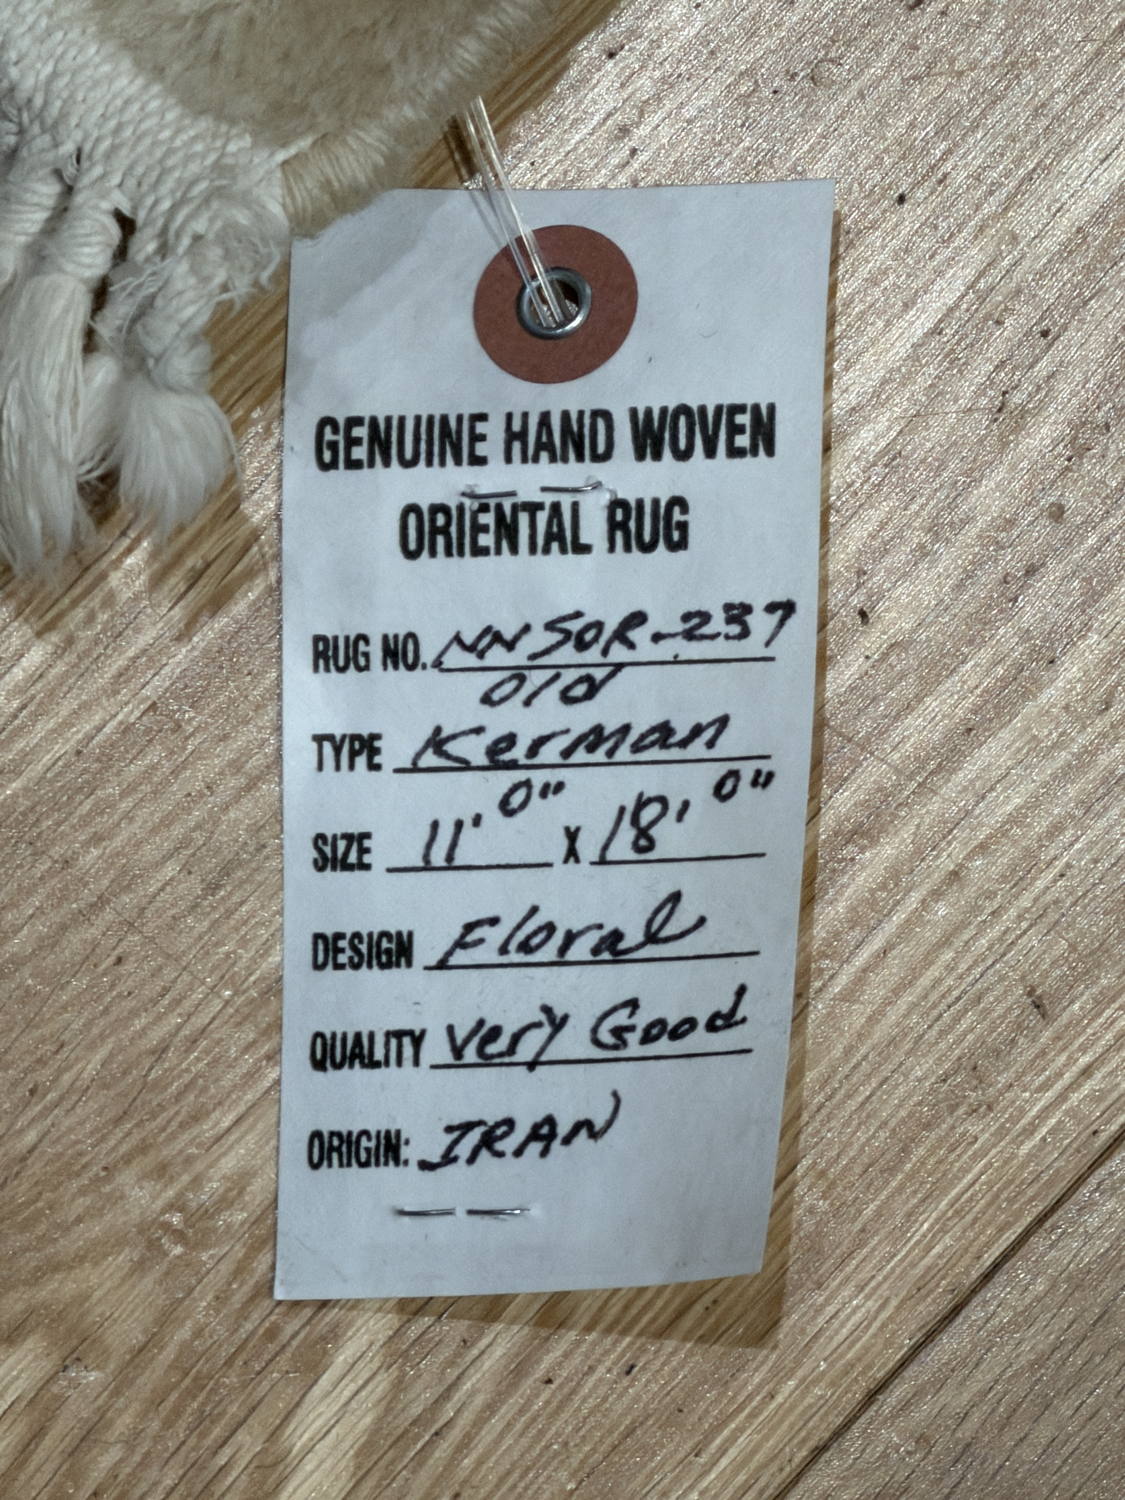 GENUINE HAND WOVEN
ORIENTAL RUG
RUG NO. NNSOR-237
old
TYPE Kerman
SIZE 11' 0" X 18' 0"
DESIGN Floral
QUALITY Very Good
ORIGIN: IRAN